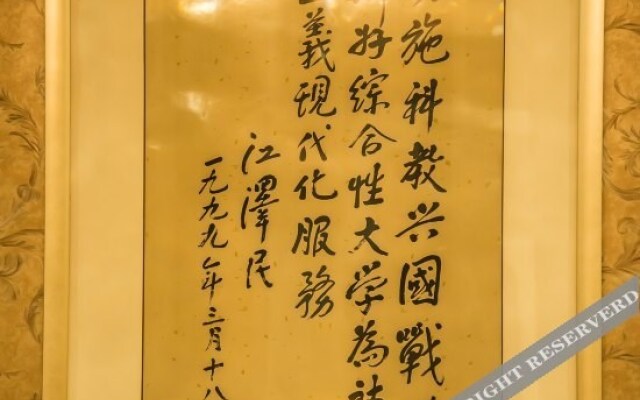 施科教兴國戰
好綜合性大学為社
義現代化服務
江澤民
一九九九年三月十八
RIGHT RESERVERD